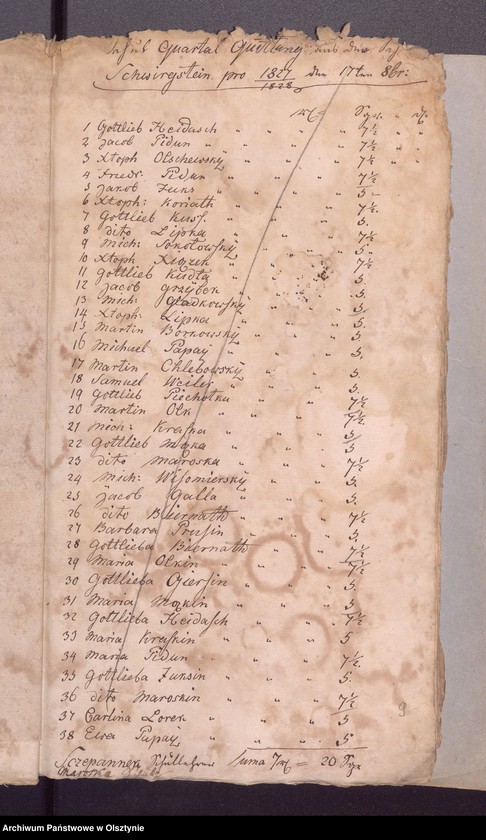 Schul Quartal Quittung aus der Sch
Schwirgstein pro 1827/1828 den 17ten 8br:
rtl Sgr. " d
1 Gottlieb Heidasch " " " 7½ " "
2 Jacob Pidun " " " 7½ " "
3 Xtoph Olschewsky " " " 7½ " "
4 Friedr. Pidun " " " 7½
5 Jakob Funs " " " 5 "
6 Xtoph: Koriath " " " 7½.
7 Gottlieb Kuss. " " " 5.
8 dito Lipka " " " 7½
9 Mich: Sokołowsky " " " 5.
10 Xtoph Xiązek " " " 7½
11 Gottlieb Kudła " " " 5.
12 Jacob Grzybek " " " 5.
13 Mich: Gładkowsky " " " 5.
14 Xtoph: Lipka " " " 5.
15 Martin Borkowsky " " " 5.
16 Michael Papay " " " 5.
17 Martin Chlebowsky " " " 5.
18 Samuel Weiler " " " 5.
19 Gottlieb Piechotka " " " 7½
20 Martin Olk " " " 7½.
21 Mich: Kraska " " " 5
22 Gottlieb Mąka " " " 5
23 dito Maroska " " " 7½
24 Mich: Wysomiersky " " " 5.
25 Jacob Galla " " " 5.
26 dito Biernath " " " 7½
27 Barbara Prusin " " " 5.
28 Gottlieba Biernath " " " 7½
29 Maria Olkin " " " 7½
30 Gottlieba Giersin " " " 5.
31 Maria Mąkin " " " 5
32 Gottlieba Heidasch " " " 7½
33 Maria Kraskin " " " 5
34 Maria Pidun " " " 7½.
35 Gottlieba Funsin " " " 5.
36 dito Maroskin " " " 7½
37 Carlina Lorek " " " 5
38 Ewa Papay " " " 5
Sczepannek Schullehrer Suma 7 rtl = 20 Sgr
Maroska
9
Archiwum Państwowe w Olsztynie